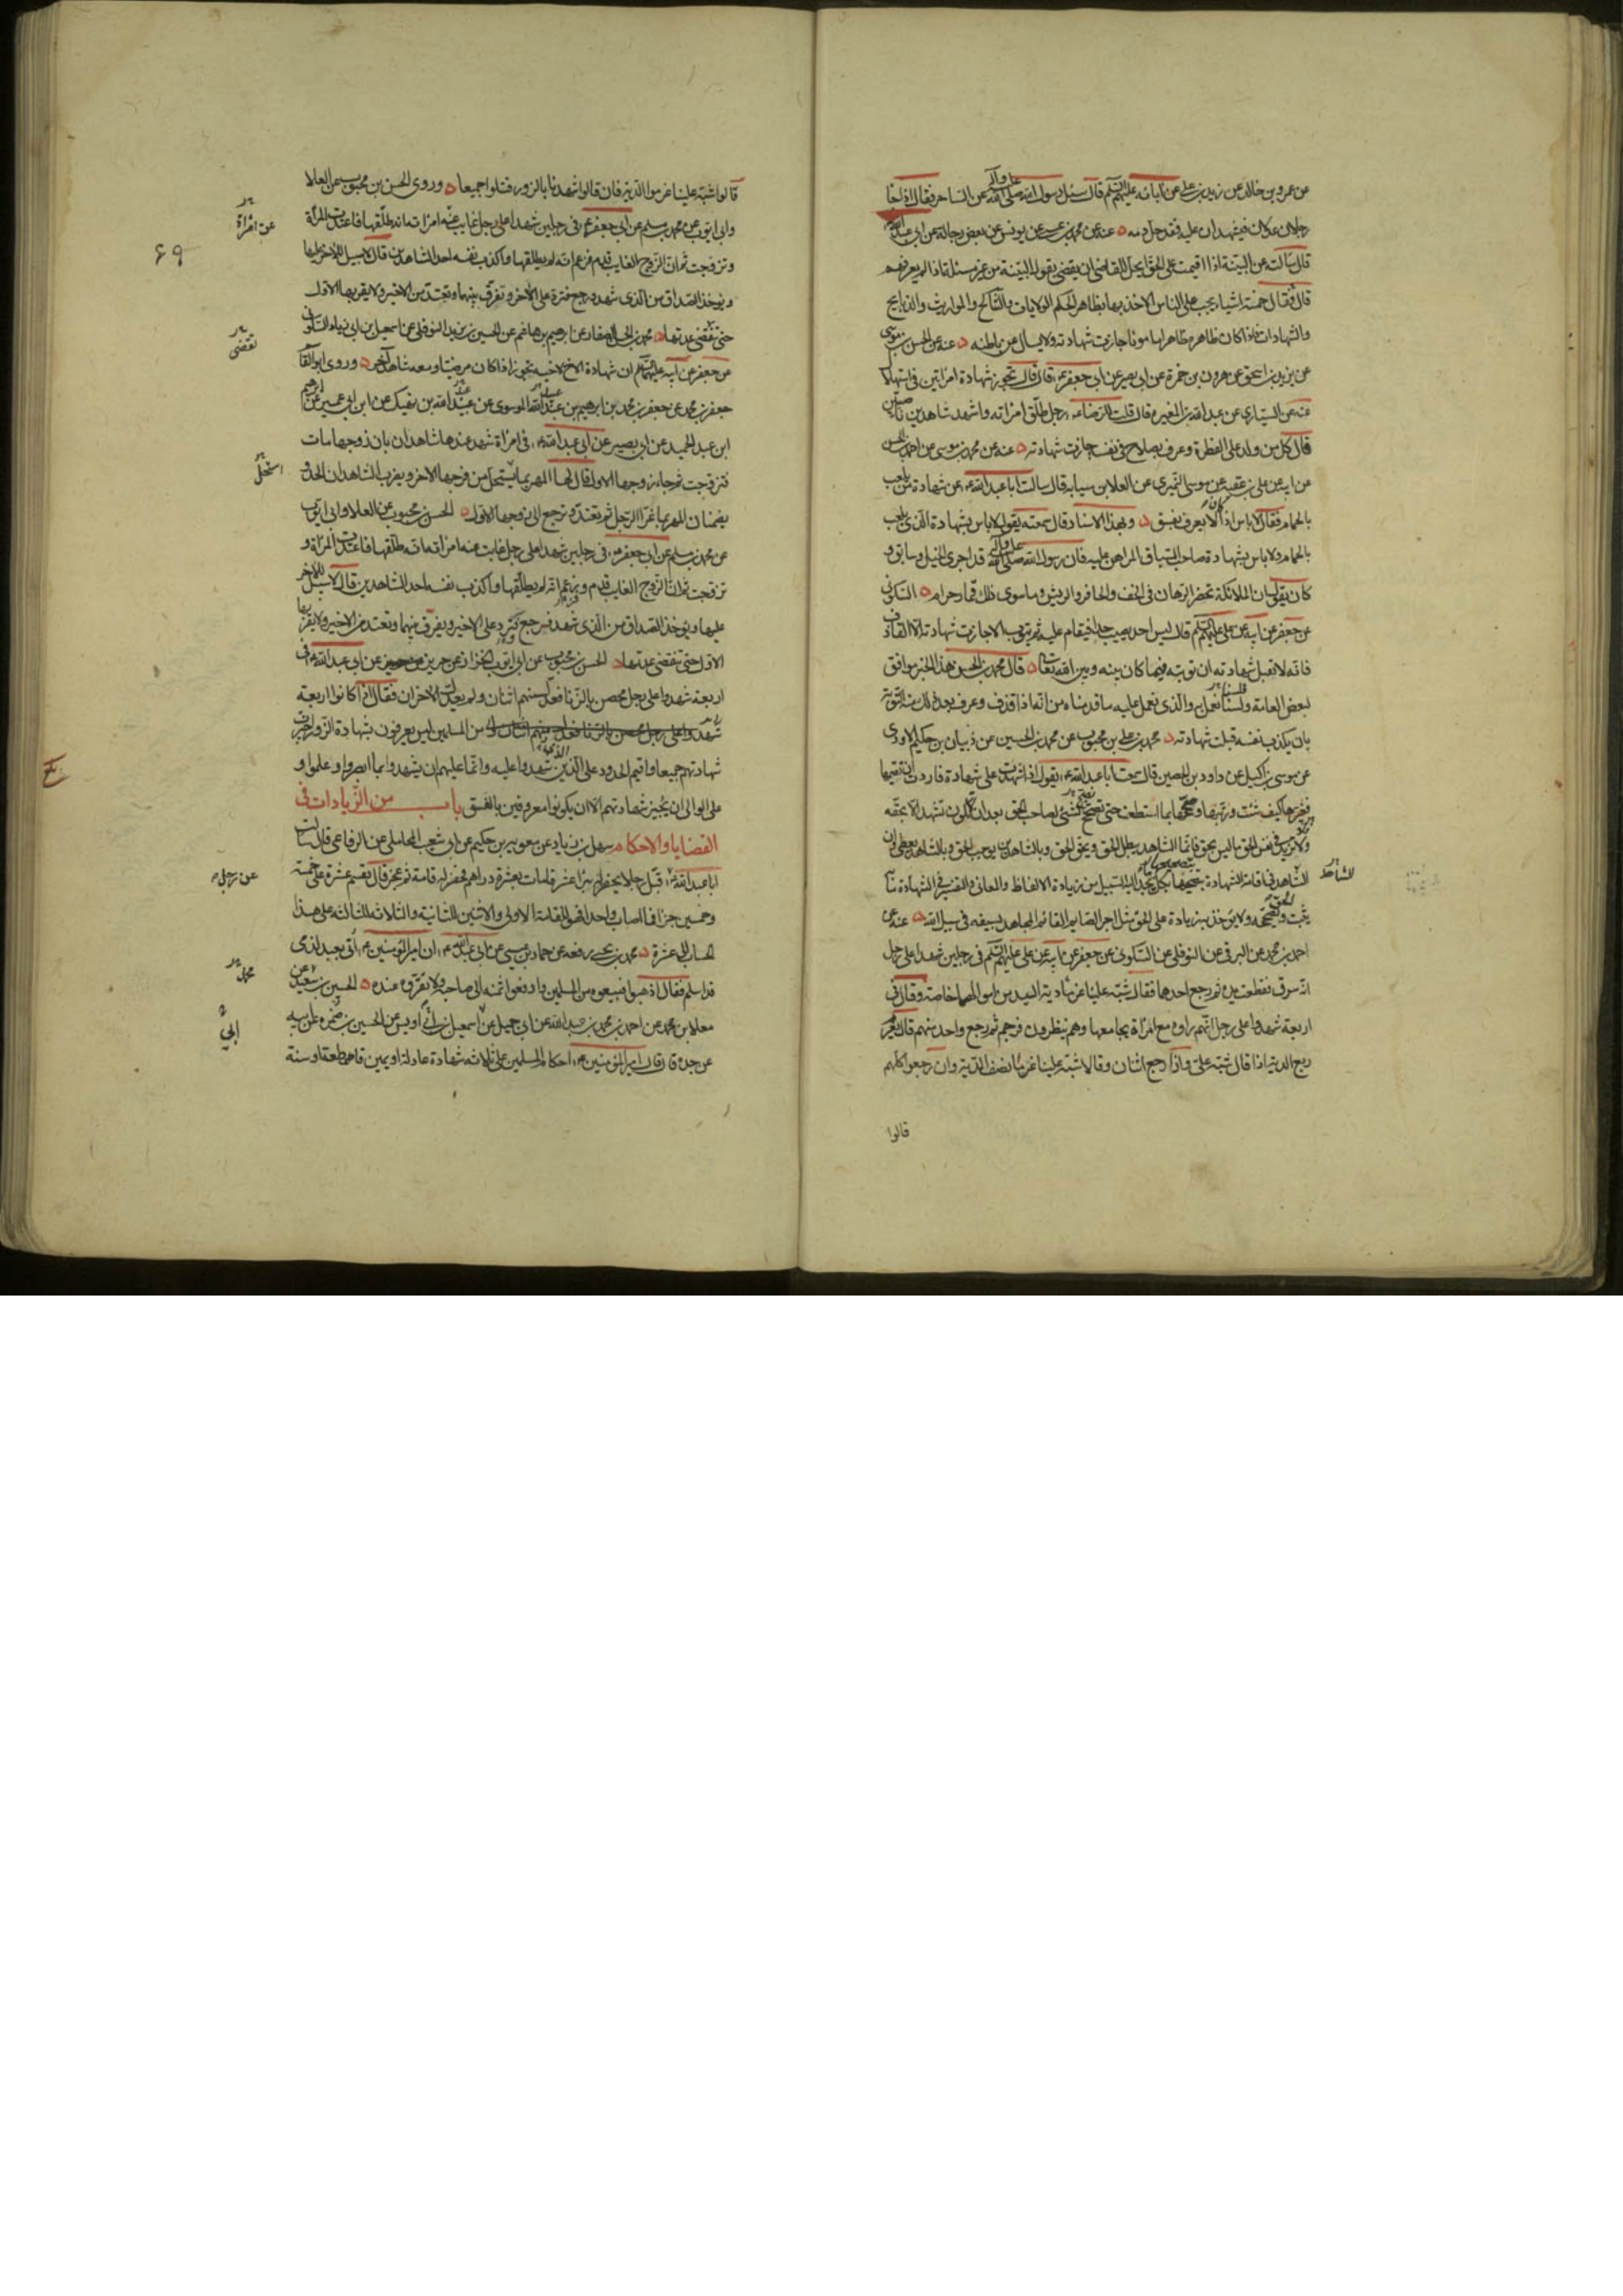 عن عمرو بن خالد عن زيد بن علي عن آبائه عليهم السلم قال سئل رسول الله صلى الله عليه وآله عن الساحر فقال اذا جا
رجلان عدلان فيشهدان عليه فقد حل دمه عنه عن محمد بن عيسى عن يونس عن بعض رجاله عن ابي عبد الله
قال سالت عن البينة اذا اقيمت على الحق ايحل للقاضي ان يقضي بقول البينة من غير مسئلة اذا لم يعرفهم
قال فقال خمسة اشيا يجب على الناس الاخذ بها بظاهر الحكم الولايات والتناكح والمواريث والذبايح
والشهادات فاذا كان ظاهره ظاهرا مامونا جازت شهادته ولا يسال عن باطنه عنه عن الحسن بن موسى
عن يزيد بن اسحق عن هرون بن حمزة عن ابي بصير عن ابي جعفر ع قال قال تجوز شهادة امراتين في استهلال
عنه عن السياري عن عبد الله بن المغيرة قال قلت للرضا ع رجل طلق امراته واشهد شاهدين ناصبين
قال كل من ولد على الفطرة وعرف بصلاح في نفسه جازت شهادته عنه عن محمد بن موسى عن احمد بن الحسن
عن ابيه عن علي بن عقبة عن موسى النميري عن العلا بن سيابه قال سالت ابا عبد الله ع عن شهادة من يلعب
بالحمام فقال لا باس اذا كان لا يعرف بفسق وبهذا الاسناد قال سمعته يقول لا باس بشهادة الذي يلعب
بالحمام ولا باس بشهادة صاحب السباق المراهن عليه فان رسول الله صلى الله عليه وآله قد اجرى الخيل وسابق و
كان يقول ان الملائكة تحضر الرهان في الخف والحافر والريش وما سوى ذلك قمار حرام السكوني
عن جعفر عن ابيه عن علي عليهم السلم قال ليس احد يصيب حدا فيقام عليه ثم يتوب الا جازت شهادته الا القاذف
فانه لا تقبل شهادته ان توبته فيما كان بينه وبين الله تعالى قال محمد بن الحسن هذا الخبر موافق
لبعض العامة ولسنا نعمل به والذي نعمل عليه ما قدمناه من انه اذا قذف وعرف بعد ذلك منه التوبة
بان يكذب نفسه قبلت شهادته محمد بن علي بن محبوب عن محمد بن الحسين عن ذبيان بن حكيم الاودي
عن موسى بن اكيل عن داود بن الحصين قال سمعت ابا عبد الله ع يقول اذا شهدت على شهادة فاردت ان تقيمها
فغيرها كيف شئت ورتبها وصححها بما استطعت حتى يصح الشئ لصاحب الحق بعد ان لا تكون تشهد الا بحقه
ولا تزيد في نفس الحق ما ليس بحق فانما الشاهد يبطل الحق ويحق الحق وبالشاهد يوجب الحق وبالشاهد يعطى وان
للشاهد في اقامة الشهادة بتصحيحها بكل ما يجد اليه السبيل من زيادة الالفاظ والمعاني والتفسير في الشهادة ما به
يثبت الحق ويصححه ولا يؤخذ به زيادة على الحق مثل اجر الصايم القائم المجاهد بسيفه في سبيل الله عنه عن
احمد بن محمد عن البرقي عن النوفلي عن السكوني عن جعفر عن ابيه عن علي عليهم السلم في رجلين شهدا على رجل
انه سرق فقطعت يده ثم رجع احدهما فقال شبه علينا غرما دية اليد من اموالهما خاصة وقال في
اربعة شهدوا على رجل انهم راوه مع امراة يجامعها وهم ينظرون فرجم ثم رجع واحد منهم قال يغرم
ربع الدية اذا قال شبه علي واذا رجع اثنان وقالا شبه علينا غرما نصف الدية وان رجعوا كلهم
قالوا
للشاهد
قالوا شبه علينا غرموا الدية فان قالوا شهدنا بالزور قتلوا جميعا وروى الحسن بن محبوب عن العلا
وابي ايوب عن محمد بن مسلم عن ابي جعفر ع في رجلين شهدا على رجل غايب عنه امراته انه طلقها فاعتدت المراة
وتزوجت ثم ان الزوج الغايب قدم فزعم انه لم يطلقها واكذب نفسه احد الشاهدين قال لا سبيل للاخير عليها
ويؤخذ الصداق من الذي شهد ورجع فترد على الاخر وتفرق بينهما وتعتد من الاخير ولا يقربها الاول
حتى تنقضي عدتها محمد بن الحسن الصفار عن ابرهيم بن هاشم عن الحسين بن يزيد النوفلي عن اسمعيل بن ابي زياد السكوني
عن جعفر عن ابيه عليهما السلم ان شهادة الاخ لاخيه تجوز اذا كان مرضيا ومعه شاهد آخر وروى ابو القاسم
جعفر بن محمد عن جعفر بن محمد بن ابرهيم بن عبد الله الموسوي عن عبيد الله بن نهيك عن ابن ابي عمير عن ابرهيم
ابن عبد الحميد عن ابي بصير عن ابي عبد الله ع في امراة شهد عندها شاهدان بان زوجها مات
فتزوجت ثم جاء زوجها الاول قال لها المهر بما يستحل من فرجها الاخر ويضرب الشاهدان الحد و
يضمنان المهر بما غرا الرجل ثم تعتد وترجع الى زوجها الاول الحسن بن محبوب عن العلا وابي ايوب
عن محمد بن مسلم عن ابي جعفر ع في رجلين شهدا على رجل غايب عنه امراته انه طلقها فاعتدت المراة و
تزوجت ثم ان الزوج الغايب قدم وزعم انه لم يطلقها واكذب نفسه احد الشاهدين قال لا سبيل للاخر
عليها ويؤخذ الصداق من الذي شهد فرجع فيرد على الاخير ويفرق بينهما وتعتد من الاخير ولا يقربها
الاول حتى تنقضي عدتها الحسن بن محبوب عن ابي ايوب الخزاز عن حريز عن ابي عبد الله ع في
اربعة شهدوا على رجل محصن بالزنا فعدل منهم اثنان ولم يعدل الاخران فقال اذا كانوا اربعة
من المسلمين ليس يعرفون بشهادة الزور اجيزت
شهادتهم جميعا واقيم الحدود على الذي شهدوا عليه وانما عليهم ان يشهدوا بما ابصروا وعلموا و
على الوالي ان يجيز شهادتهم الا ان يكونوا معروفين بالفسق باب من الزيادات في
القضايا والاحكام سهل بن زياد عن معوية بن حكيم عن ابي شعيب المحاملي عن الرفاعي قال سالت
ابا عبد الله ع قبل رجلا يحفر له بئرا عشر قامات بعشرة دراهم فحفر له قامة ثم عجز قال يقسم عشرة على خمسة
وخمسين جزءا فما اصاب واحدا فهو للقامة الاولى والاثنين للثانية والثلاثة للثالثة على هذا
الحساب الى عشرة محمد بن يحيى رفعه عن حماد بن عيسى عن ابي عبد الله ع ان امير المؤمنين ع اتي بعبد لذمي
قد اسلم فقال اذهبوا فبيعوه من المسلمين وادفعوا ثمنه الى صاحبه ولا تقروه عنده الحسين بن سعيد عن
معلى بن محمد عن احمد بن محمد بن عبد الله عن ابي جميل عن اسمعيل بن ابي اويس عن الحسين بن ضمرة عن ابيه
عن جده قال قال امير المؤمنين ع احكام المسلمين على ثلاثة شهادة عادلة او يمين قاطعة او سنة
عن امراة
تنقضي
استحل
عن رجل
محمد
ابي
۶۹